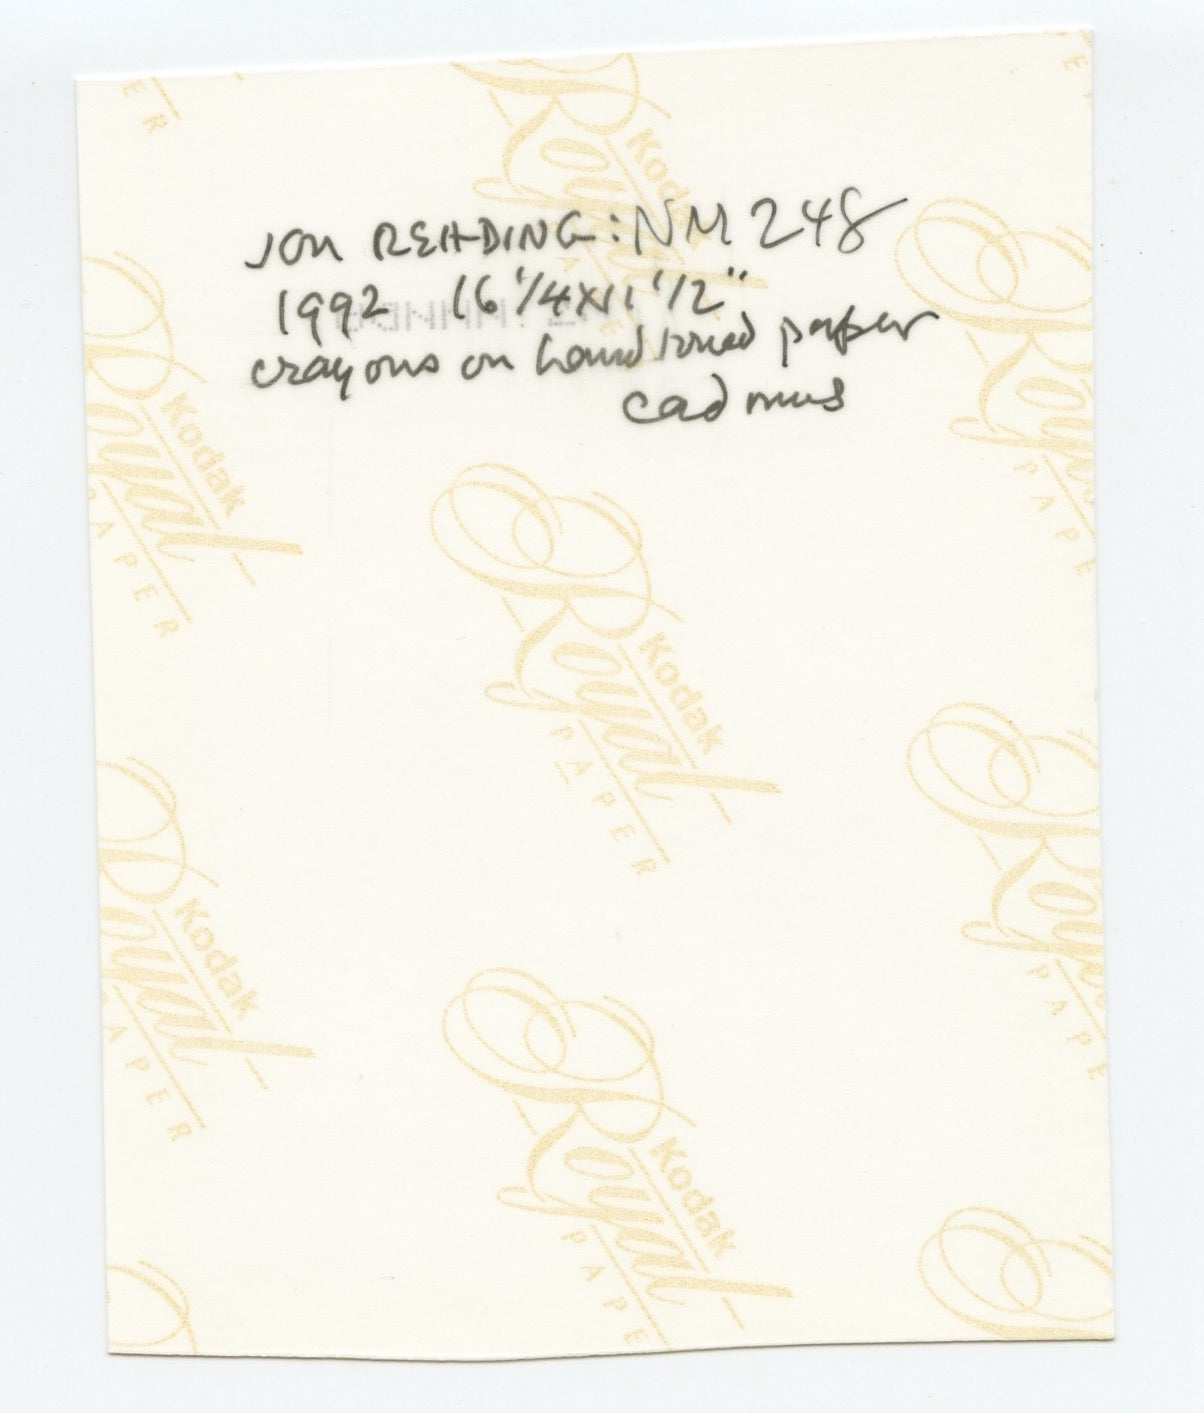 JON READING: NM 248
1992 16 1/4 x 11 1/2"
crayons on hand toned paper
cadmus
Kodak
Royal
PAPER
Kodak
Royal
PAPER
Kodak
Royal
PAPER
Kodak
Royal
PAPER
Kodak
Royal
PAPER